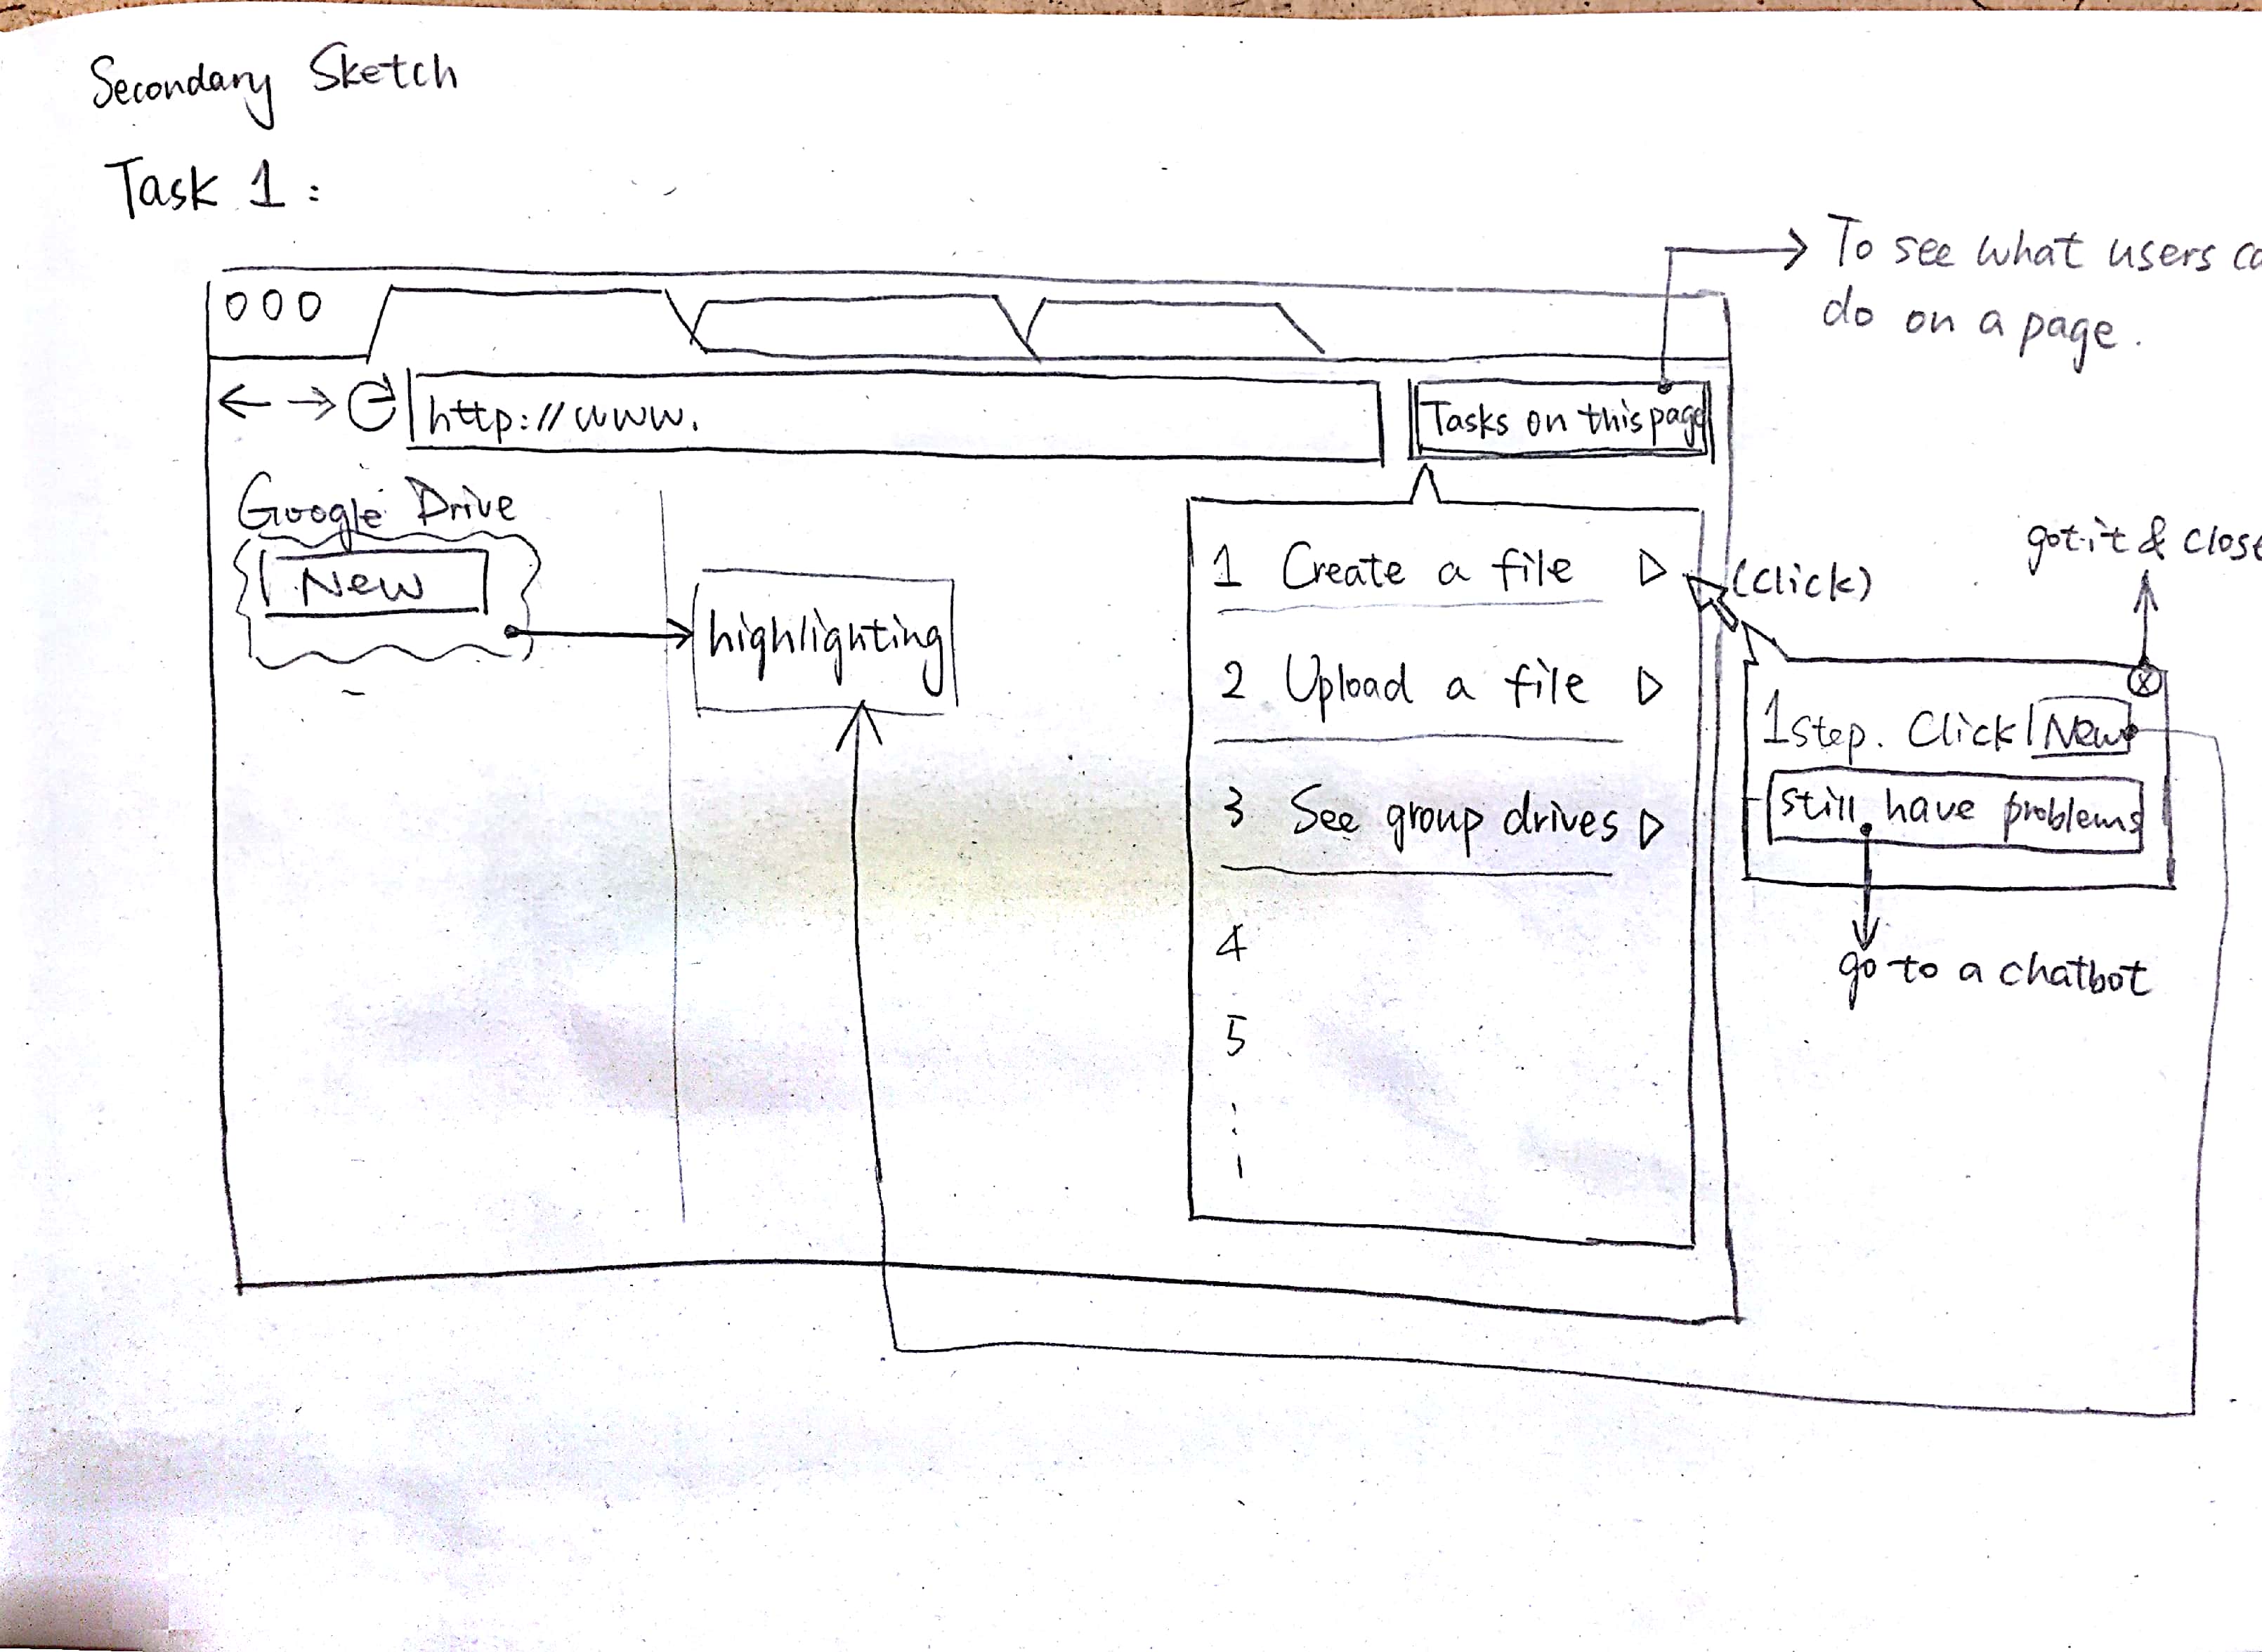 Secondary Sketch
Task 1 :
To see what users
do on a page.
http://www.
Tasks on this page
Google Drive
New
highlighting
1 Create a file
(click)
2 Upload a file
3 See group drives
4
5
got it & close
1 step. Click New
still have problems
go to a chatbot